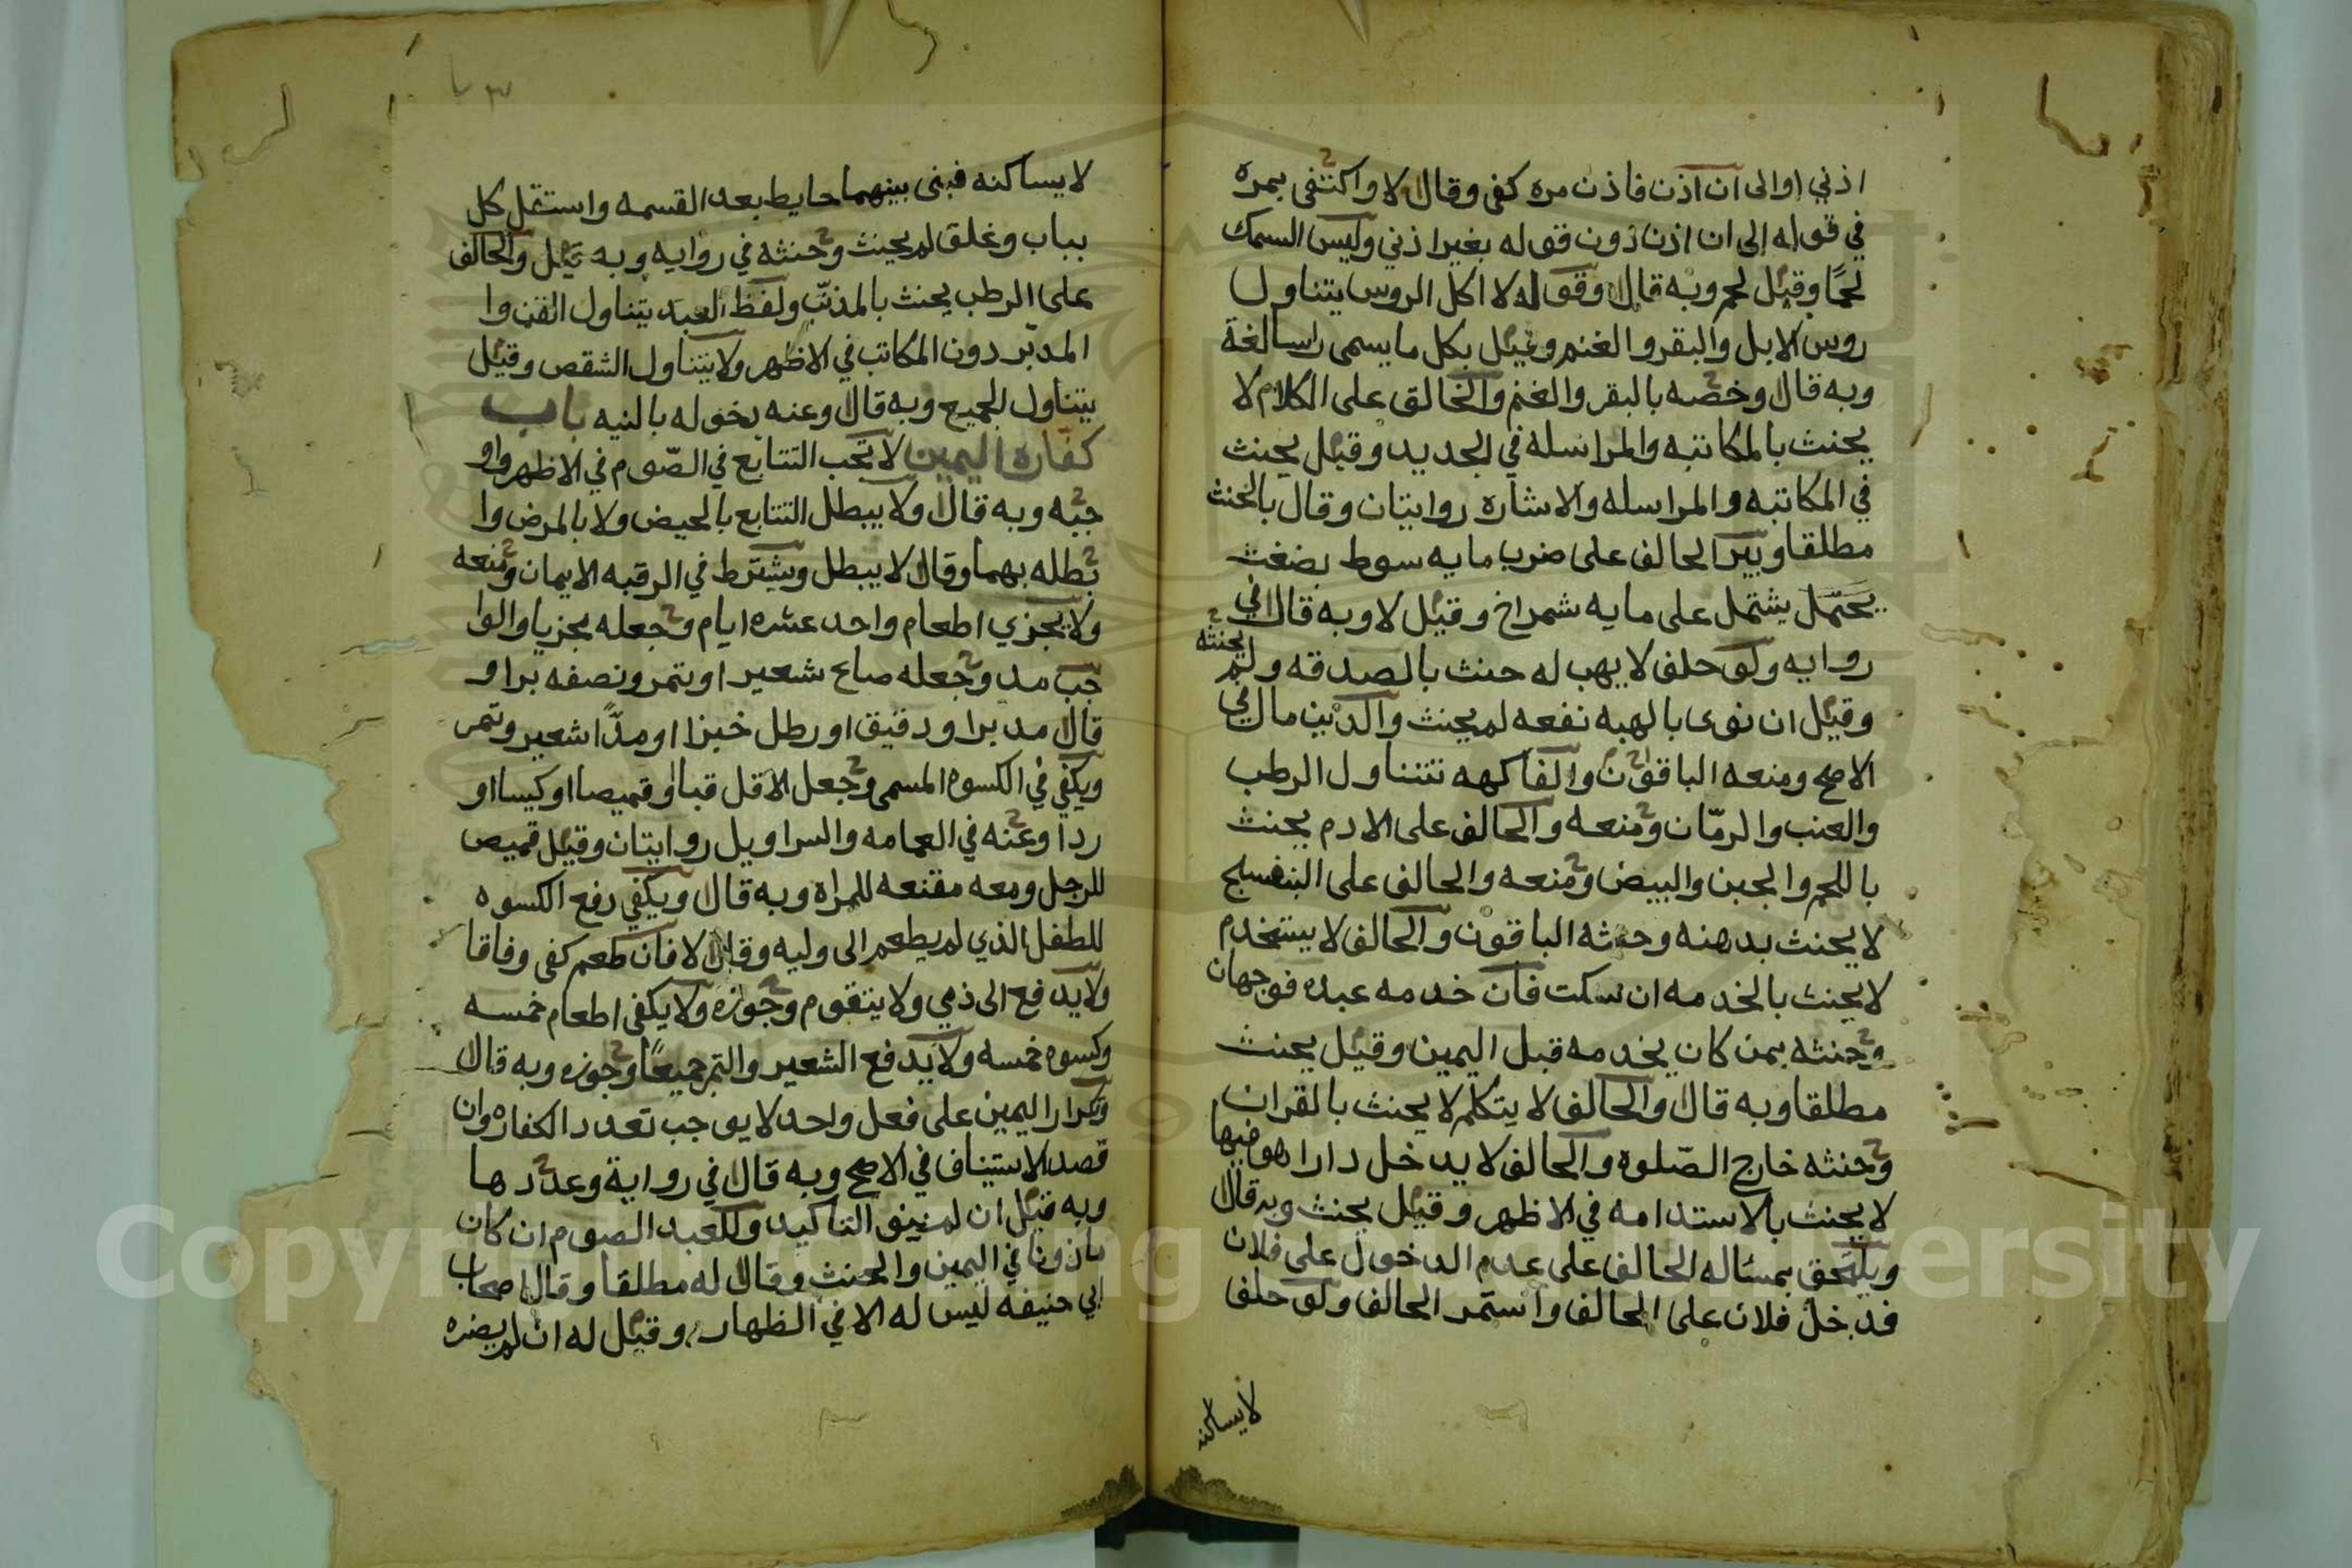 اذني اوالى ان اذن فاذن مره كفى وقال لا واكتفى بمره
في قوله الى ان اذن دون قوله بغير اذني وليس السمك
لحمًا وقيل لحم وبه قال وقوله لا اكل الروس يتناول
روس الابل والبقر والغنم وقيل بكل ما يسمى راسا لغة
وبه قال وخصه بالبقر والغنم والحالف على الكلام لا
يحنث بالمكاتبه والمراسله في الجديد وقيل يحنث
في المكاتبه والمراسله والاشاره روايتان وقال بالحنث
مطلقا ويبر الحالف على ضرب مايه سوط بضغث
يحتمل يشتمل على مايه شمراخ وقيل لا وبه قال في
روايه ولو حلف لا يهب له حنث بالصدقه ولم يحنثه
وقيل ان نوى بالهبه نفعه لم يحنث والدين مال في
الاصح ومنعه الباقون والفاكهه تتناول الرطب
والعنب والرمّان ومنعه والحالف على الادم يحنث
باللحم والجبن والبيض ومنعه والحالف على البنفسج
لا يحنث بدهنه وحنثه الباقون والحالف لا يستخدم
لا يحنث بالخدمه ان سكت فان خدمه عبده فوجهان
وحنثه بمن كان يخدمه قبل اليمين وقيل يحنث
مطلقا وبه قال والحالف لا يتكلم لا يحنث بالقران
وحنثه خارج الصّلوه والحالف لا يدخل دارا هو فيها
لا يحنث بالاستدامه في الاظهر وقيل يحنث وبه قال
ويلتحق بمسئاله الحالف على عدم الدخول على فلان
فدخل فلان على الحالف واستمر الحالف ولو حلف
لا يساكنه
لا يساكنه فبنى بينهما حايط بعد القسمه واستقل كل
بباب وغلق لم يحنث وحنثه في روايه وبه قيل والحالف
على الرطب يحنث بالمذنّب ولفظ العبد يتناول القن وا
المدبّر دون المكاتب في الاظهر ولا يتناول الشقص وقيل
يتناول الجميع وبه قال وعنه دخوله بالنيه باب
كفارة اليمين لا يجب التتابع في الصّوم في الاظهر واو
جبه وبه قال ولا يبطل التتابع بالحيض ولا بالمرض وا
بطله بهما وقال لا يبطل ويشترط في الرقبه الايمان ومنعه
ولا يجزي اطعام واحد عشره ايام وجعله مجزيا والوا
جب مد وجعله صاع شعير او تمر ونصفه برا و
قال مد برا ودقيق او رطل خبزا او مدّا شعير وتمر
ويكفي في الكسوه المسمى وجعل الاقل قبا او قميصا او كيسا او
ردا وعنه في العمامه والسراويل روايتان وقيل قميص
للرجل ومعه مقنعه للمراه وبه قال ويكفي رفع الكسوه
للطفل الذي لم يطعم الى وليه وقال لا فان طعم كفى وفاقا
ولا يدفع الى ذمي ولا يتقوم وجوزه ولا يكفى اطعام خمسه
وكسوه خمسه ولا يدفع الشعير والتمر جميعًا وجوزه وبه قال
وتكرار اليمين على فعل واحد لا يوجب تعدد الكفاره وان
قصد الاستيناف في الاصح وبه قال في رواية وعددها
وبه قيل ان لم ينو التاكيد وللعبد الصوم ان كان
ماذونا في اليمين والحنث وقال له مطلقا وقال اصحاب
ابي حنيفه ليس له الا في الظهار وقيل له ان لم يضره
Copyright © King Saud University